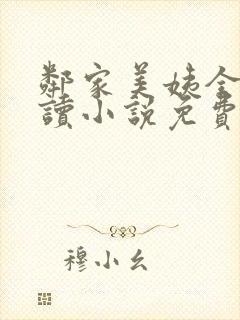 鄰家美姨全
讀小說免費
穆小幺